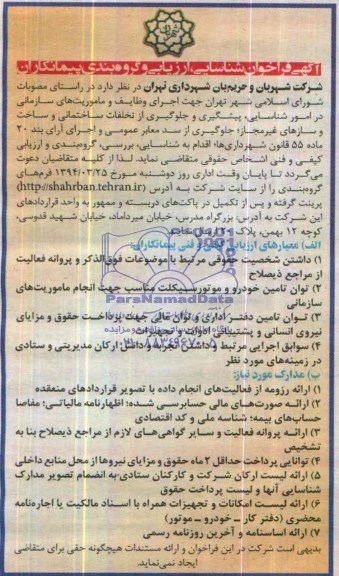 آگهی فراخوان شناسایی، ارزیابی و گروه‌بندی پیمانکاران
شرکت شهربان و حریم‌بان شهرداری تهران در نظر دارد در راستای مصوبات
شورای اسلامی شهر تهران جهت اجرای وظایف و ماموریت‌های سازمانی
در امور شناسایی، پیشگیری و جلوگیری از تخلفات ساختمانی و ساخت
و سازهای غیرمجاز؛ جلوگیری از سد معابر عمومی و اجرای آرای بند ۲۰
ماده ۵۵ قانون شهرداری‌ها؛ اقدام به شناسایی، بررسی، گروه‌بندی و ارزیابی
کیفی و فنی اشخاص حقوقی متقاضی نماید. لذا از کلیه متقاضیان دعوت
می‌گردد تا پایان وقت اداری روز دوشنبه مورخ ۱۳۹۴/۰۳/۲۵ فرم‌های
گروه‌بندی را از سایت شرکت به آدرس (http://shahrban.tehran.ir)
پرینت گرفته و پس از تکمیل در پاکت‌های دربسته و ممهور به واحد قراردادهای
این شرکت به آدرس: بزرگراه مدرس، خیابان میرداماد، خیابان شهید قدوسی،
کوچه ۱۲ بهمن، پلاک
الف) معیارهای ارزیابی کیفی و فنی پیمانکاران:
۱) داشتن شخصیت حقوقی مرتبط با موضوعات فوق‌الذکر و پروانه فعالیت
از مراجع ذیصلاح
۲) توان تامین خودرو و موتورسیکلت مناسب جهت انجام ماموریت‌های
سازمانی
۳) توان تامین دفتر اداری و توان مالی جهت پرداخت حقوق و مزایای
نیروی انسانی و پشتیبانی ادوات و تجهیزات
۴) سوابق اجرایی مرتبط و داشتن تجربه و دانش ارکان مدیریتی و ستادی
در زمینه‌های مورد نظر
ب) مدارک مورد نیاز:
۱) ارائه رزومه از فعالیت‌های انجام داده با تصویر قراردادهای منعقده
۲) ارائه صورت‌های مالی حسابرسی شده؛ اظهارنامه مالیاتی؛ مفاصا
حساب‌های بیمه؛ شناسه ملی و کد اقتصادی
۳) ارائه پروانه فعالیت و سایر گواهی‌های لازم از مراجع ذیصلاح بنا به
تشخیص
۴) توانایی پرداخت حداقل ۲ ماه حقوق و مزایای نیروها از محل منابع داخلی
۵) ارائه لیست ارکان شرکت و کارکنان ستادی به انضمام تصویر مدارک
شناسایی آنها و لیست پرداخت حقوق
۶) ارائه لیست امکانات و تجهیزات همراه با اسناد مالکیت یا اجاره‌نامه
محضری (دفتر کار ـ خودرو ـ موتور)
۷) ارائه اساسنامه و آخرین روزنامه رسمی
بدیهی است شرکت در این فراخوان و ارائه مستندات هیچگونه حقی برای متقاضی
ایجاد نمی‌نماید.
ParsNamadData
۸۸۳۴۹۶۷۰-۵